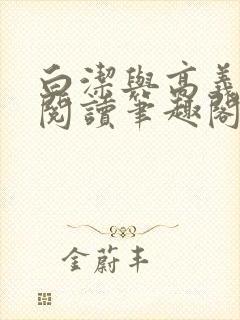 白潔與高義
閱讀筆趣閣
金蔚丰